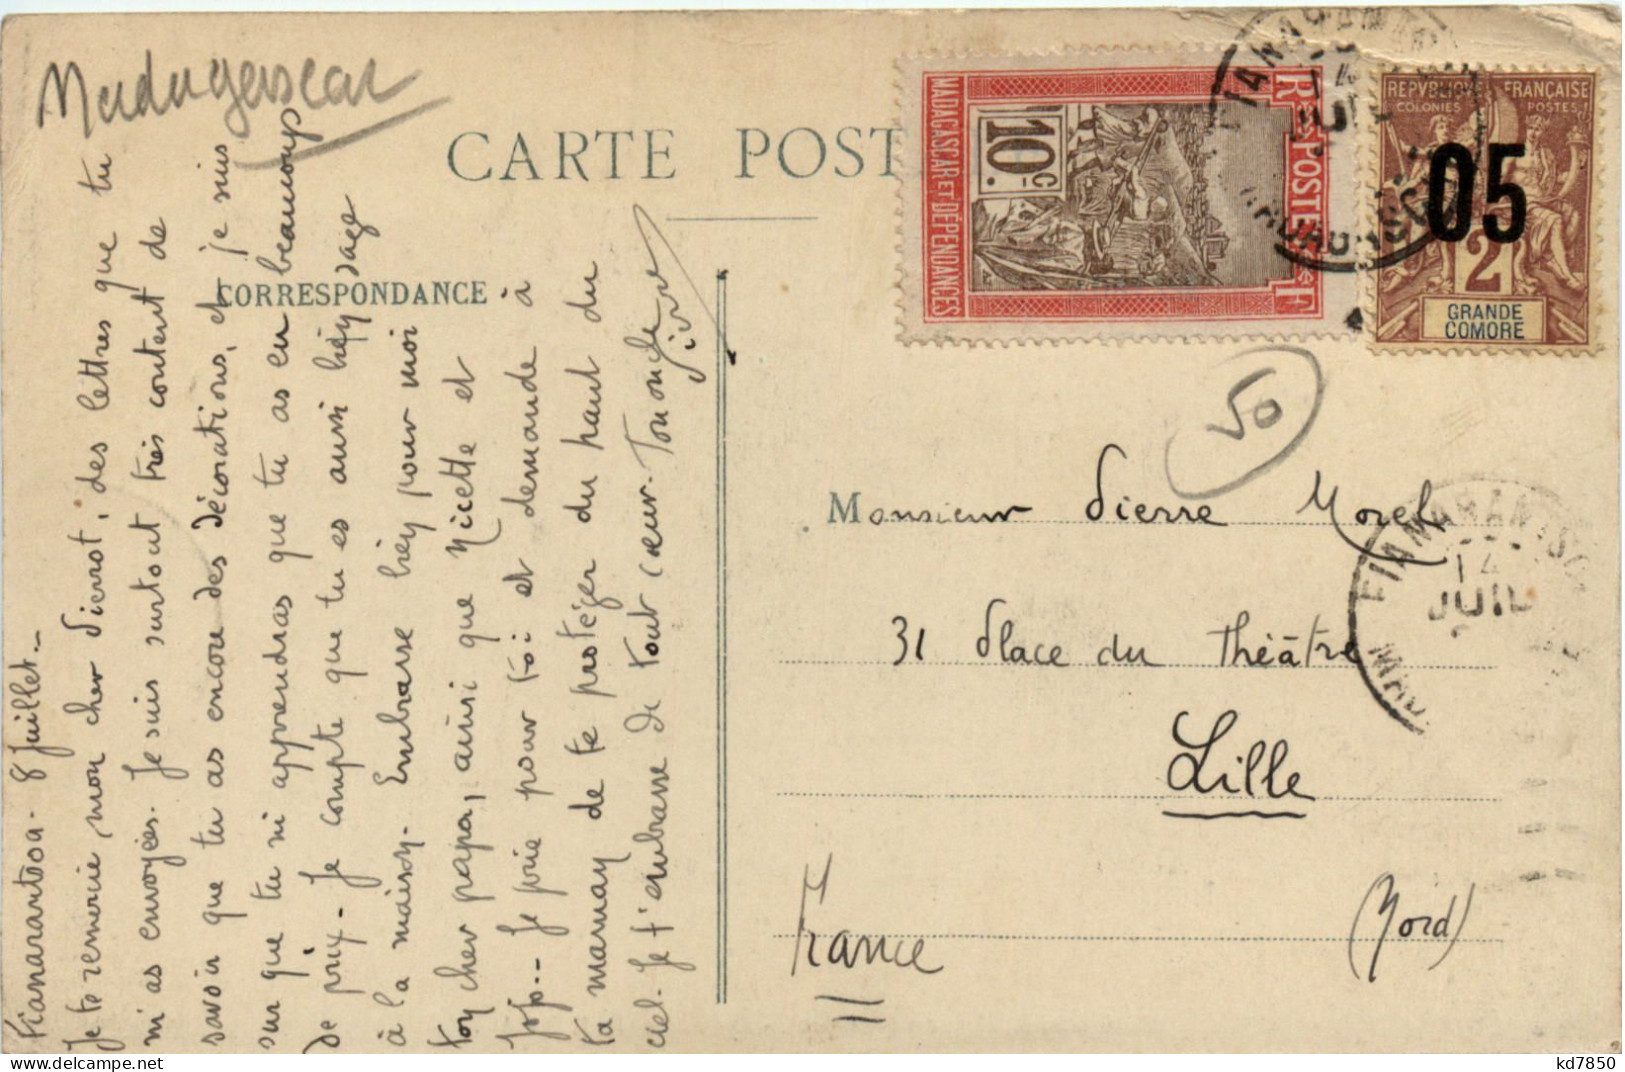 Madagascar
CARTE POST
CORRESPONDANCE
Fianarantsoa. 8 Juillet_
Je te remercie, mon cher Pierrot, des lettres que tu
m'as envoyées. Je suis surtout très content de
savoir que tu as encore des décorations, et je suis
sur que tu m'apprendras que tu as eu beaucoup
de prix - Je compte que tu es aussi bien sage
à la maison. Embrasse bien pour moi
ton cher papa, ainsi que Nicette et
Jojo.- Je prie pour toi et demande à
ta maman de te protéger du haut du
ciel. Je t'embrasse de tout cœur. Ton oncle
MADAGASCAR ET DÉPENDANCES
10 c.
POSTES
REPUBLIQUE FRANÇAISE
COLONIES POSTES
05
2
GRANDE
COMORE
FIANARANTSOA
14
JUIL
50
Monsieur Pierre Morel
31 Place du Théâtre
Lille
France
(Nord)
FIANARANTSOA
14
JUIL
kd7850